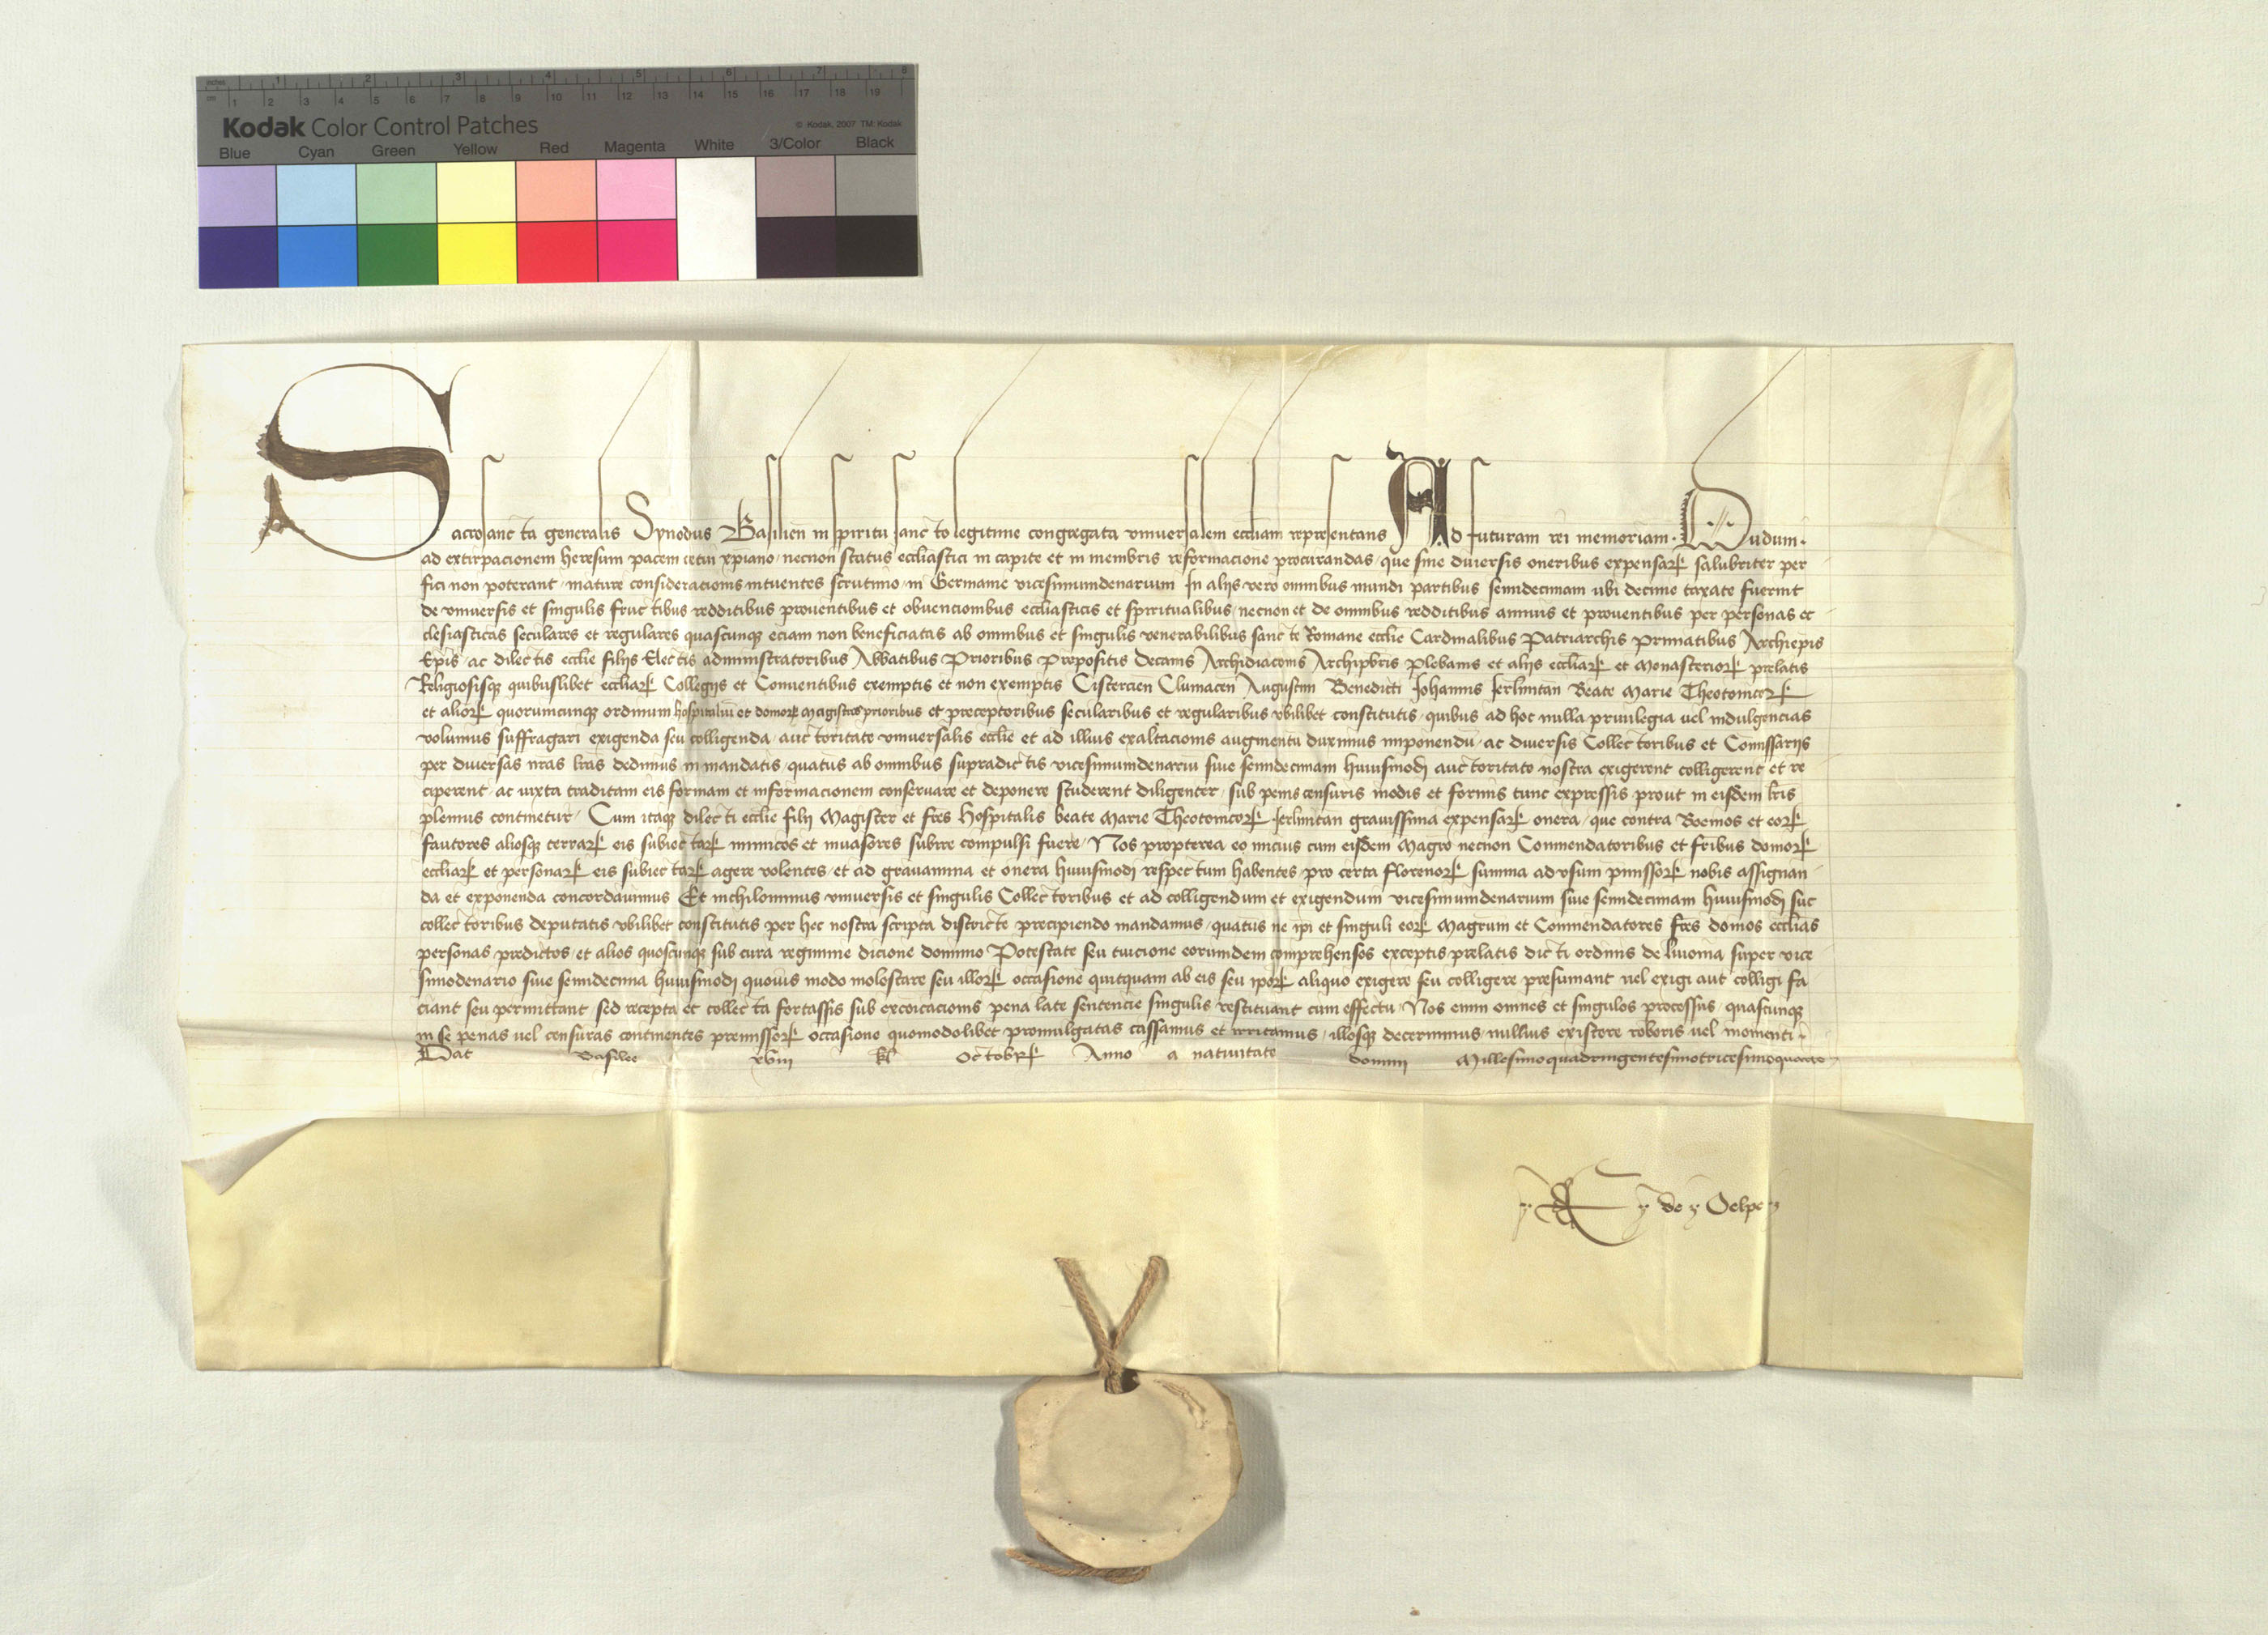 inches 1 2 3 4 5 6 7 8
cm 1 2 3 4 5 6 7 8 9 10 11 12 13 14 15 16 17 18 19
Kodak Color Control Patches © Kodak, 2007 TM: Kodak
Blue Cyan Green Yellow Red Magenta White 3/Color Black
Sacrosancta generalis Synodus Basilien in spiritu sancto legitime congregata universalem eccliam representans Ad futuram rei memoriam. Dudum.
ad extirpacionem heresum pacem in xpiano necnon status eccliastici in capite et in membris reformacione procurandas que sine diversis oneribus expensarꝭ salubriter per
fici non poterant mature consideracionis intuentes scrutinio in Germanie vicesimumdenarium In alijs vero omnibus mundi partibus semidecimam ubi decime taxate fuerint
de universis et singulis fructibus redditibus proventibus et obvencionibus eccliasticis et spiritualibus necnon et de omnibus redditibus annuis et proventibus per personas ec
clesiasticas seculares et regulares quascunqꝫ eciam non beneficiatas ab omnibus et singulis venerabilibus sancte Romane ecclie Cardinalibus Patriarchis Primatibus Archiepis
Epis ac dilectis ecclie filijs Electis administratoribus Abbatibus Prioribus Prepositis Decanis Archidiaconis Archipbris Plebanis et alijs eccliarꝭ et Monasteriorꝭ prelatis
Religiosisqꝫ quibuslibet eccliarꝭ Collegijs et Conventibus exemptis et non exemptis Cistercien Cluniacen Augustini Benedicti Johannis Jerlimitan Beate Marie Theotonicorꝭ
et aliorꝭ quorumcunqꝫ ordinum hospitaliu et domorꝭ magistris prioribus et preceptoribus secularibus et regularibus ubilibet constitutis quibus ad hoc nulla privilegia vel indulgencias
volumus suffragari exigenda seu colligenda auctoritate universalis ecclie et ad illius exaltacionis augmentu duximus imponendu ac diversis Collectoribus et Comissarijs
per diversas nras lras dedimus in mandatis quatus ab omnibus supradictis vicesimumdenariu sive semidecimam huiusmodi auctoritate nostra exigerent colligerent et re
ciperent ac iuxta traditam eis formam et informacionem conservare et deponere studerent diligenter sub penis censuris modis et formis tunc expressis prout in eisdem lris
plenius continetur Cum itaqꝫ dilecti ecclie filij Magister et fres Hospitalis beate Marie Theotonicorꝭ Jerlimitan gravissima expensarꝭ onera que contra Boemos et eorꝭ
fautores aliosqꝫ terrarꝭ eis subiectarꝭ inimicos et invasores subire compulsi fuere Nos propterea eo micius cum eisdem Magro necnon Comendatoribus et fribus domorꝭ
eccliarꝭ et personarꝭ eis subiectarꝭ agere volentes et ad gravamina et onera huiusmodi respectum habentes pro certa florenorꝭ summa ad usum pmissorꝭ nobis assignan
da et exponenda concordavimus Et nichilominus universis et singulis Collectoribus et ad colligendum et exigendum vicesimumdenarium sive semidecimam huiusmodi suc
collectoribus deputatis ubilibet constitutis per hec nostra scripta districte precipiendo mandamus quatus ne ipi et singuli eorꝭ Magrum et Comendatores fres domos ecclias
personas predictos et alios quoscunqꝫ sub cura regimine dicione dominio Potestate seu tuicione eorumdem comprehensos exceptis prelatis dicti ordinis de livonia super vice
simodenario sive semidecima huiusmodi quovis modo molestare seu illorꝭ occasione quitquam ab eis seu iporꝭ aliquo exigere seu colligere presumant vel exigi aut colligi fa
ciant seu permittant sed recepta et collecta fortassis sub excoicacionis pena late sentencie singulis restituant cum effectu Nos enim omnes et singulos processus quascunqꝫ
in se penas vel censuras continentes premissorꝭ occasione quomodolibet promulgatas cassamus et irritamus illosqꝫ decernimus nullius existere roboris vel momenti.
Dat Basilee xviii kl Octobrꝭ Anno a nativitate domini Millesimoquadringentesimotricesimoquarto
de Oelpe